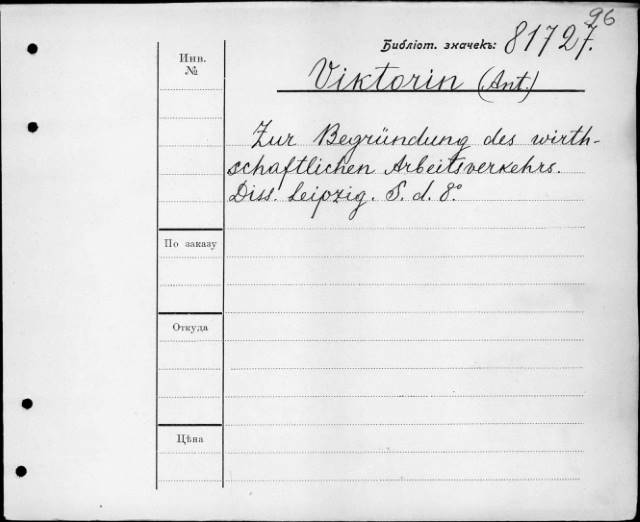 96
Библіот. значекъ: 81727.
Инв.
№
Viktorin (Ant.)
Zur Begründung des wirth-
schaftlichen Arbeitsverkehrs.
Diss. Leipzig. S. d. 8°
По заказу
Откуда
Цѣна